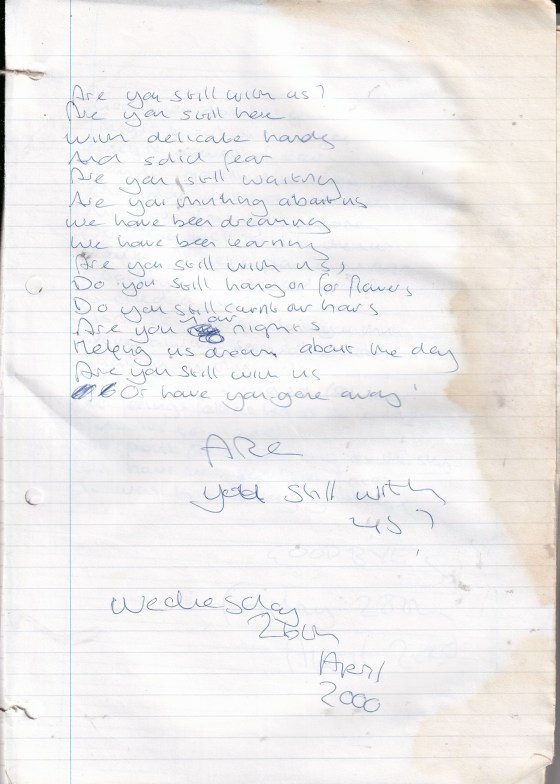 Are you still with us?
Are you still here
with delicate hands
And solid fear
Are you still waiting
Are you thinking about us
we have been dreaming
we have been learning
Are you still with us,
Do you still hang on for flowers
Do you still count our hours
Are you your nights
Helping us dream about the day
Are you still with us
Or have you gone away!
ARe
you still with
us?
Wednesday
26th
April
2000